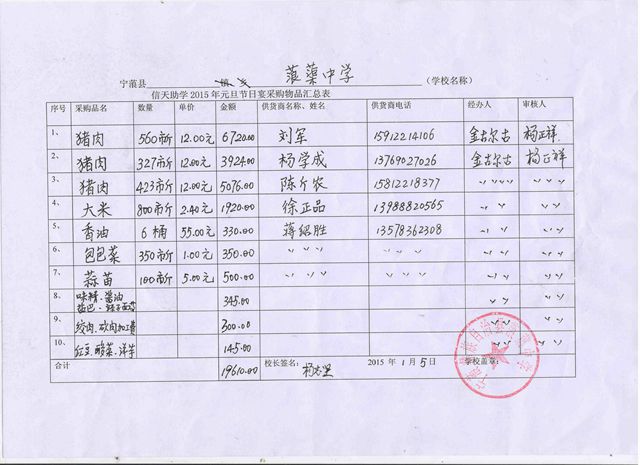 宁蒗县 蒗蕖中学 (学校名称)
信天助学 2015 年元旦节日宴采购物品汇总表
序号 采购品名 数量 单价 金额 供货商名称、姓名 供货商电话 经办人 审核人
1、 猪肉 560市斤 12.00元 6720.00 刘军 15912214106 金古尔古 杨正祥
2、 猪肉 327市斤 12.00元 3924.00 杨学成 13769027026 金古尔古 杨正祥
3、 猪肉 423市斤 12.00元 5076.00 陈斤农 15812218377 〃 〃 〃 〃
4、 大米 800市斤 2.40元 1920.00 徐正品 13988820565 〃 〃 〃 〃
5、 香油 6桶 55.00元 330.00 蒋绍胜 13578362308 〃 〃 〃 〃
6、 包包菜 350市斤 1.00元 350.00 〃 〃 〃 〃 〃 〃 〃 〃 〃 〃
7、 蒜苗 100市斤 5.00元 500.00 〃 〃 〃 〃 〃 〃 〃 〃 〃 〃
8、 味精、酱油 345.00 〃 〃 〃 〃
盐巴、
9、 绞肉、砍肉加工费 300.00 〃 〃 〃 〃
10、 红豆、酸菜、洋芋 145.00 〃 〃 〃 〃
合计 19610.00 校长签名: 2015 年 1 月 5 日 学校盖章: